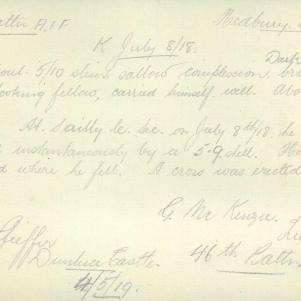 Battn A.I.F. Medbury
K July 8/18.
out 5/10 slim sallow complexion, Dark
looking fellow, carried himself well. Abo
At Sailly le Sec on July 8th/18. he
instantaneously by a 5.9 shell. He
d where he fell. A cross was erected
G. McKenzie.
Pfeiffer
Dunluce Castle. 46th Battn
4/5/19.